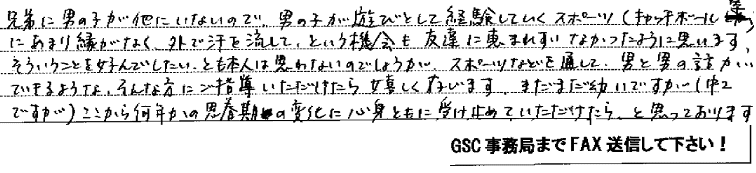 兄弟に男の子が他にいないので、男の子が遊びとして経験していくスポーツ（キャッチボール等）
にあまり縁がなく、外で汗を流して、という機会も友達に恵まれずいなかったように思います。
そういうことを好んでしたい、とも本人は思わないのでしょうが、スポーツなどを通して、男と男の話がい
できるような、そんな方にご指導いただけたら嬉しく存じます。まだまだ幼いですが（中2
ですが）ここから何年かの思春期の変化に心身ともに受け止めていただけたら、と思っております
GSC 事務局まで FAX 送信して下さい！